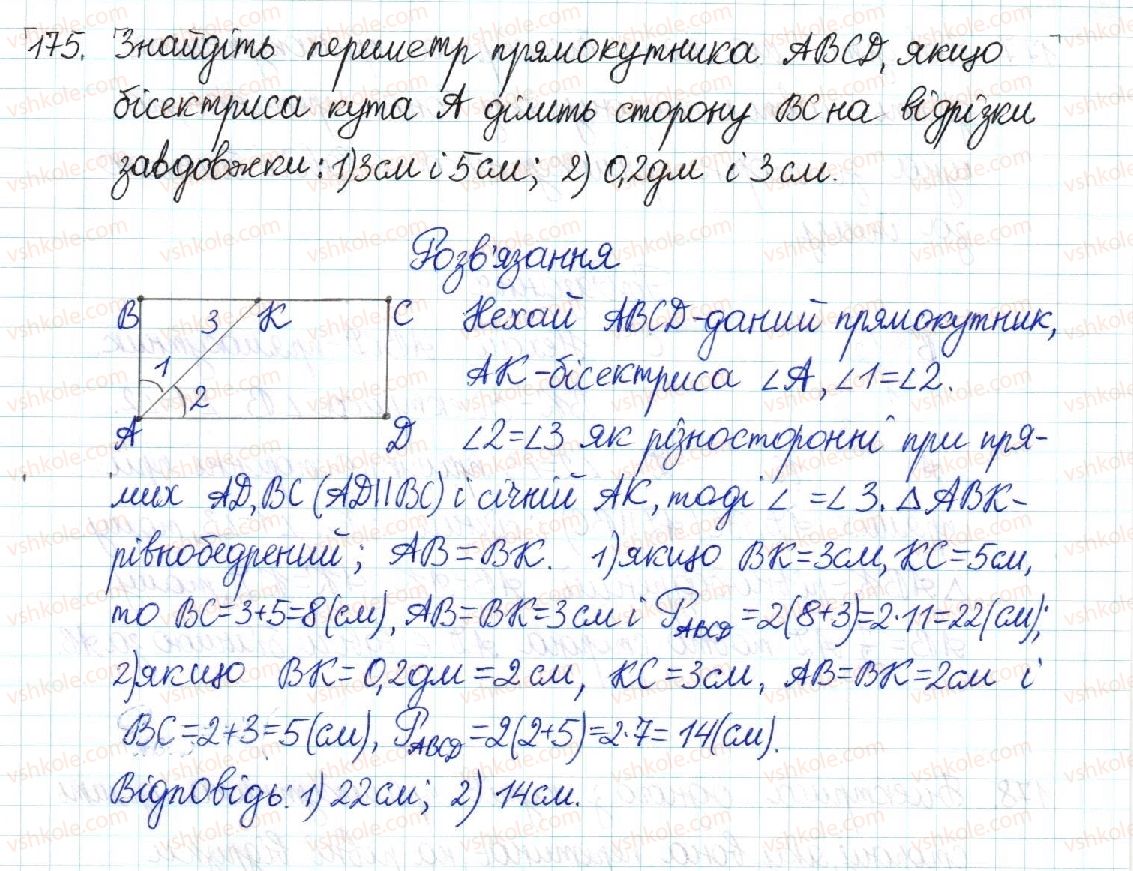 175. Знайдіть периметр прямокутника ABCD, якщо
бісектриса кута A ділить сторону BC на відрізки
завдовжки: 1) 3 см і 5 см; 2) 0,2 дм і 3 см.
Розв'язання
B 3 K C
1
2
A D
Нехай ABCD - даний прямокутник,
AK - бісектриса ∠A, ∠1=∠2.
∠2=∠3 як різносторонні при пря-
мих AD, BC (AD||BC) і січній AK, тоді ∠ =∠3. △ABK-
рівнобедрений; AB=BK. 1) якщо BK=3см, KC=5см,
то BC=3+5=8(см), AB=BK=3см і P_ABCD=2(8+3)=2·11=22(см);
2) якщо BK=0,2дм=2см, KC=3см, AB=BK=2см і
BC=2+3=5(см), P_ABCD=2(2+5)=2·7=14(см).
Відповідь: 1) 22см; 2) 14см.